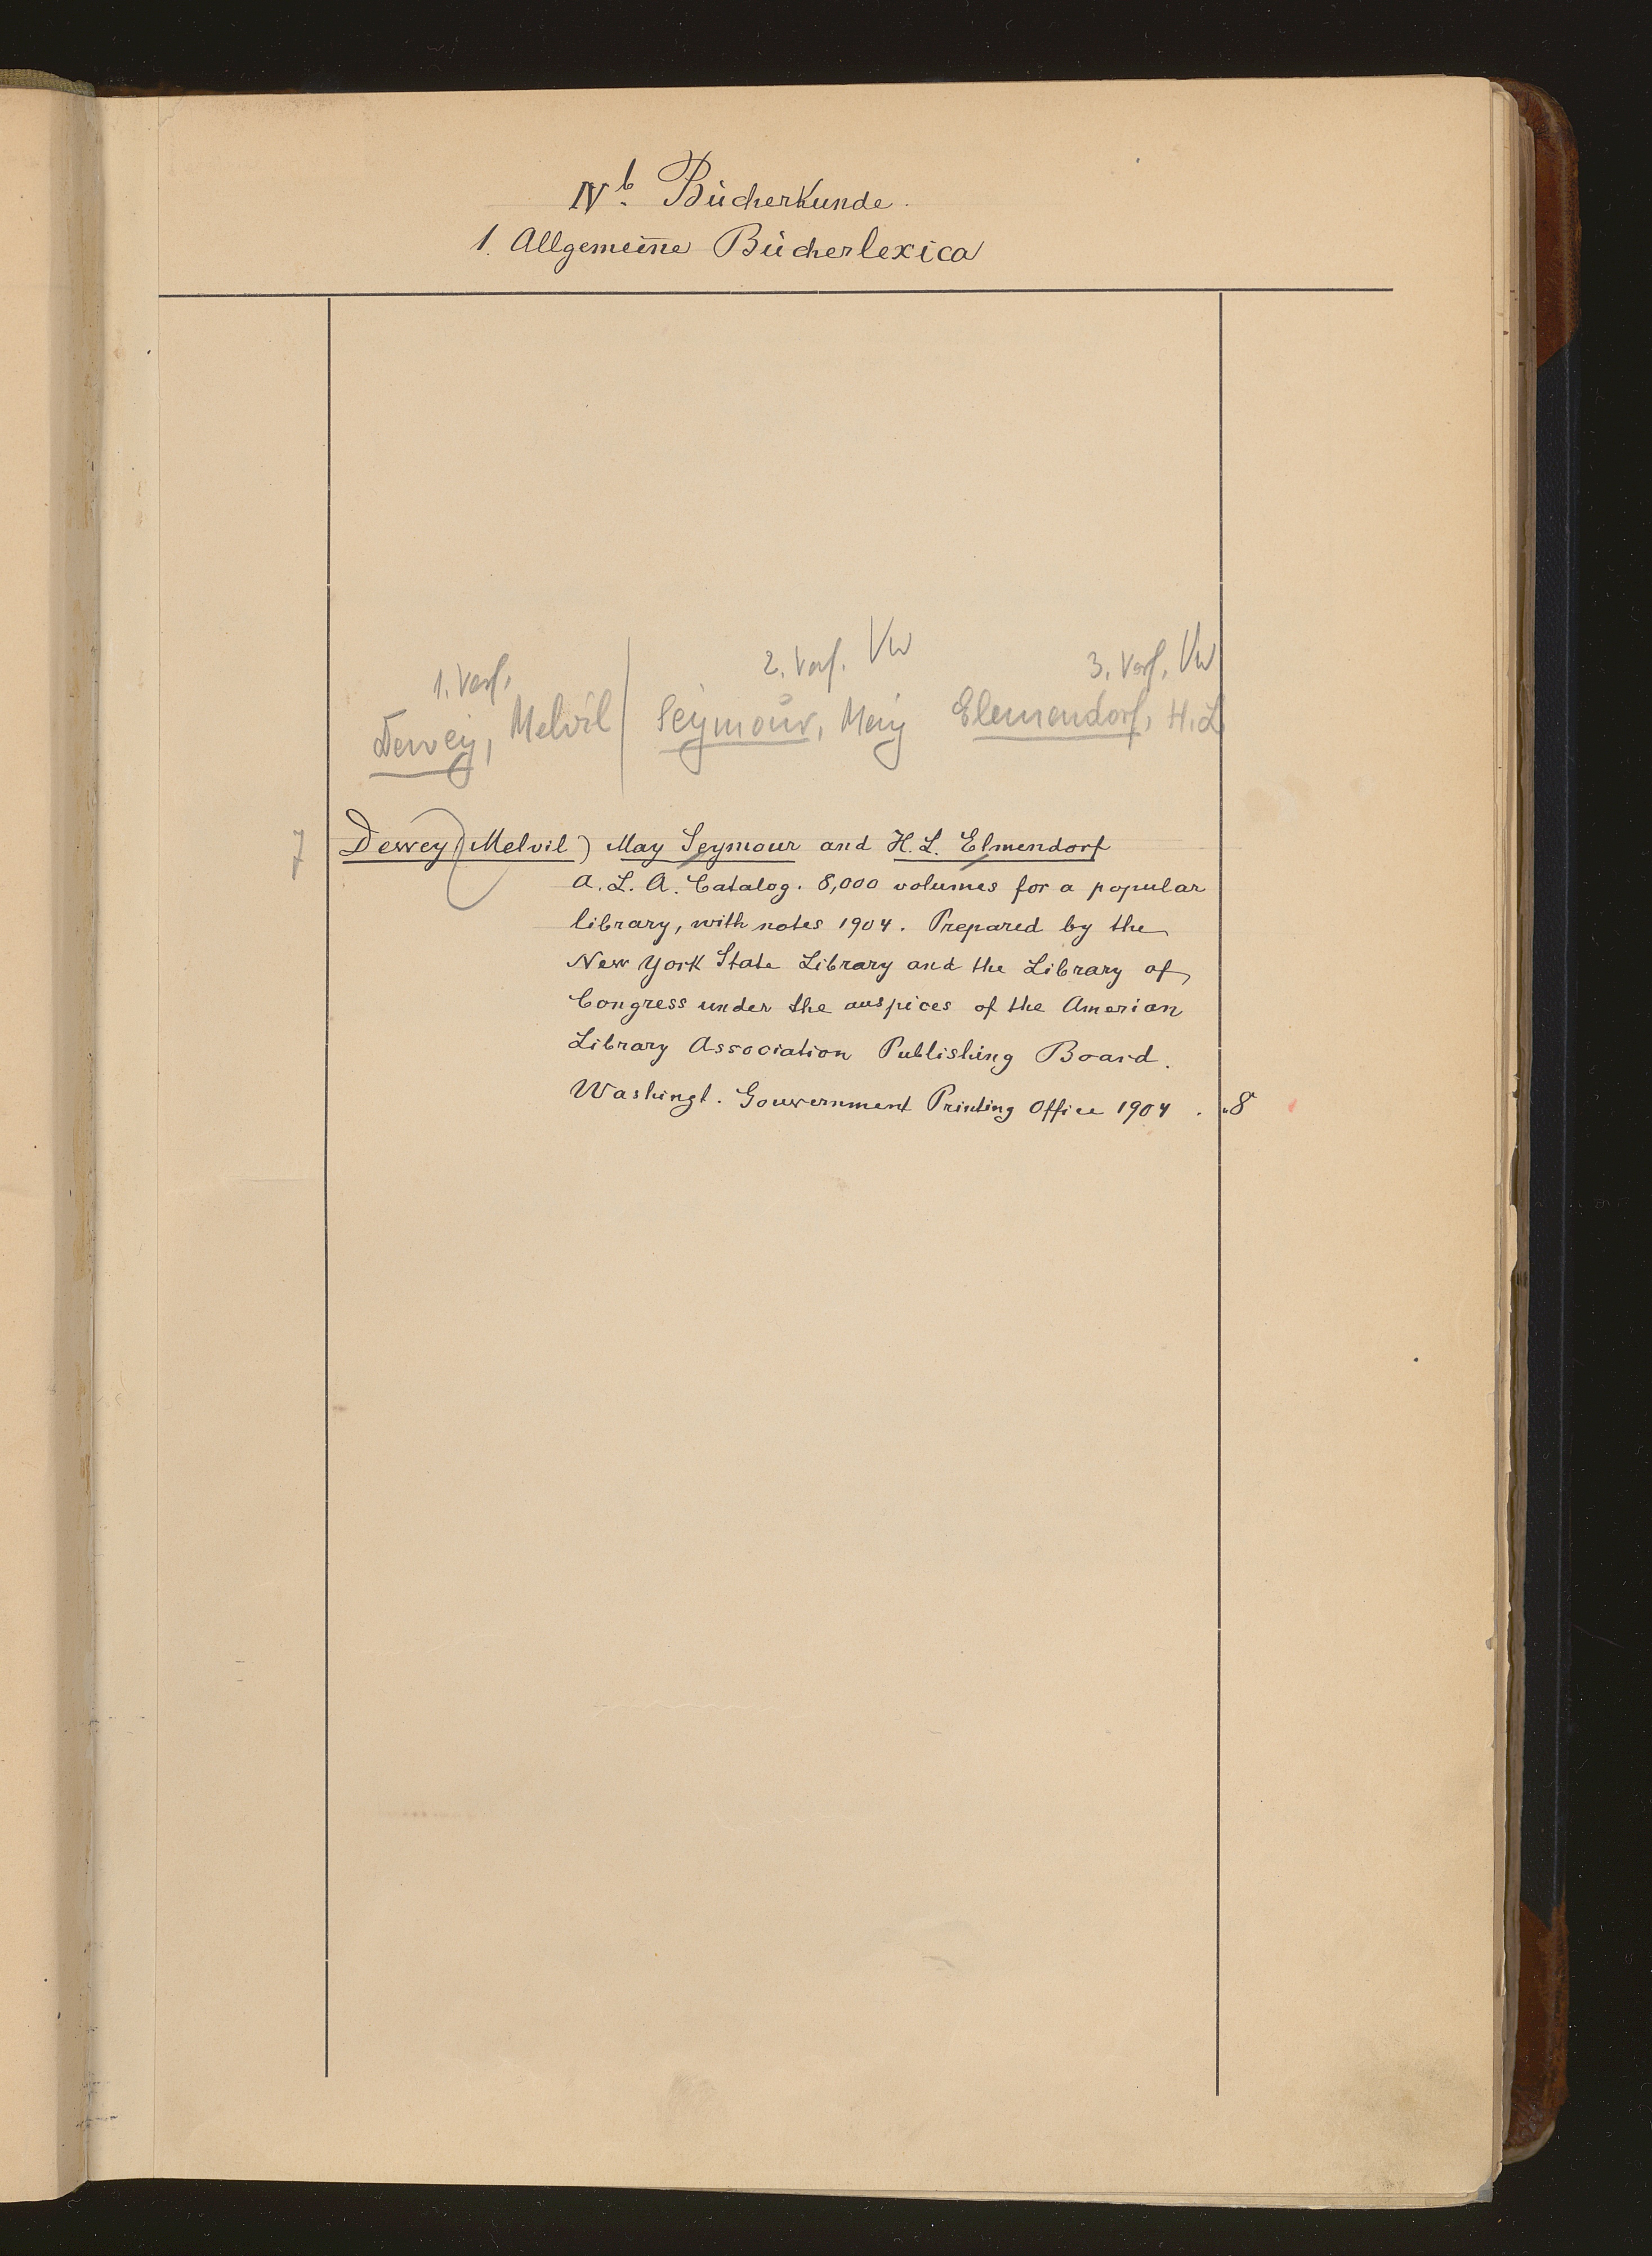 IV b. Bücherkunde.
1. Allgemeine Bücherlexica
1. Verf. 2. Verf. Vw 3. Verf. Vw
Dewey, Melvil | Seymour, May Elemendorf, H. L
7 Dewey (Melvil) May Seymour and H. L. Elmendorf
A. L. A. Catalog. 8,000 volumes for a popular
library, with notes 1904. Prepared by the
New York State Library and the Library of
Congress under the auspices of the Amerian
Library Association Publishing Board.
Washingt. Gouvernment Printing Office 1904 . 8